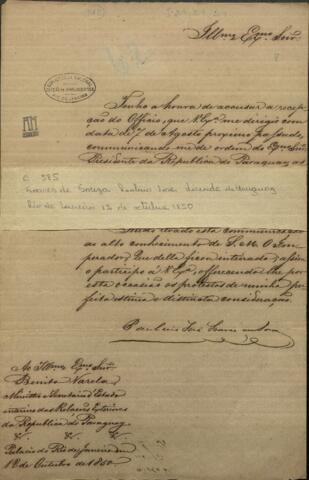 Illmo. e Exmo. Senr.
Tenho a honra de accusar a recep-
ção do Officio, que V. Exa. me dirigio com
data de 7 de Agosto proximo passado,
communicando-me de ordem do Exmo. Snr.
Presidente da Republica do Paraguay, as
C 385
Rio de Janeiro 18 de octubre 1850
levado esta communicação
ao alto conhecimento de S. M. O Im-
perador, Que della ficou inteirado, assim
o participo a V. Exa., offerecendo-lhe por
esta occasião os protestos de minha per-
feita estima e distincta consideração.
Ao Illmo. Exmo. Snr.
Benito Varela
Ministro e Secretario d'Estado
interino das Relações Exteriores
da Republica do Paraguay
Palacio do Rio de Janeiro em
18 de Outubro de 1850